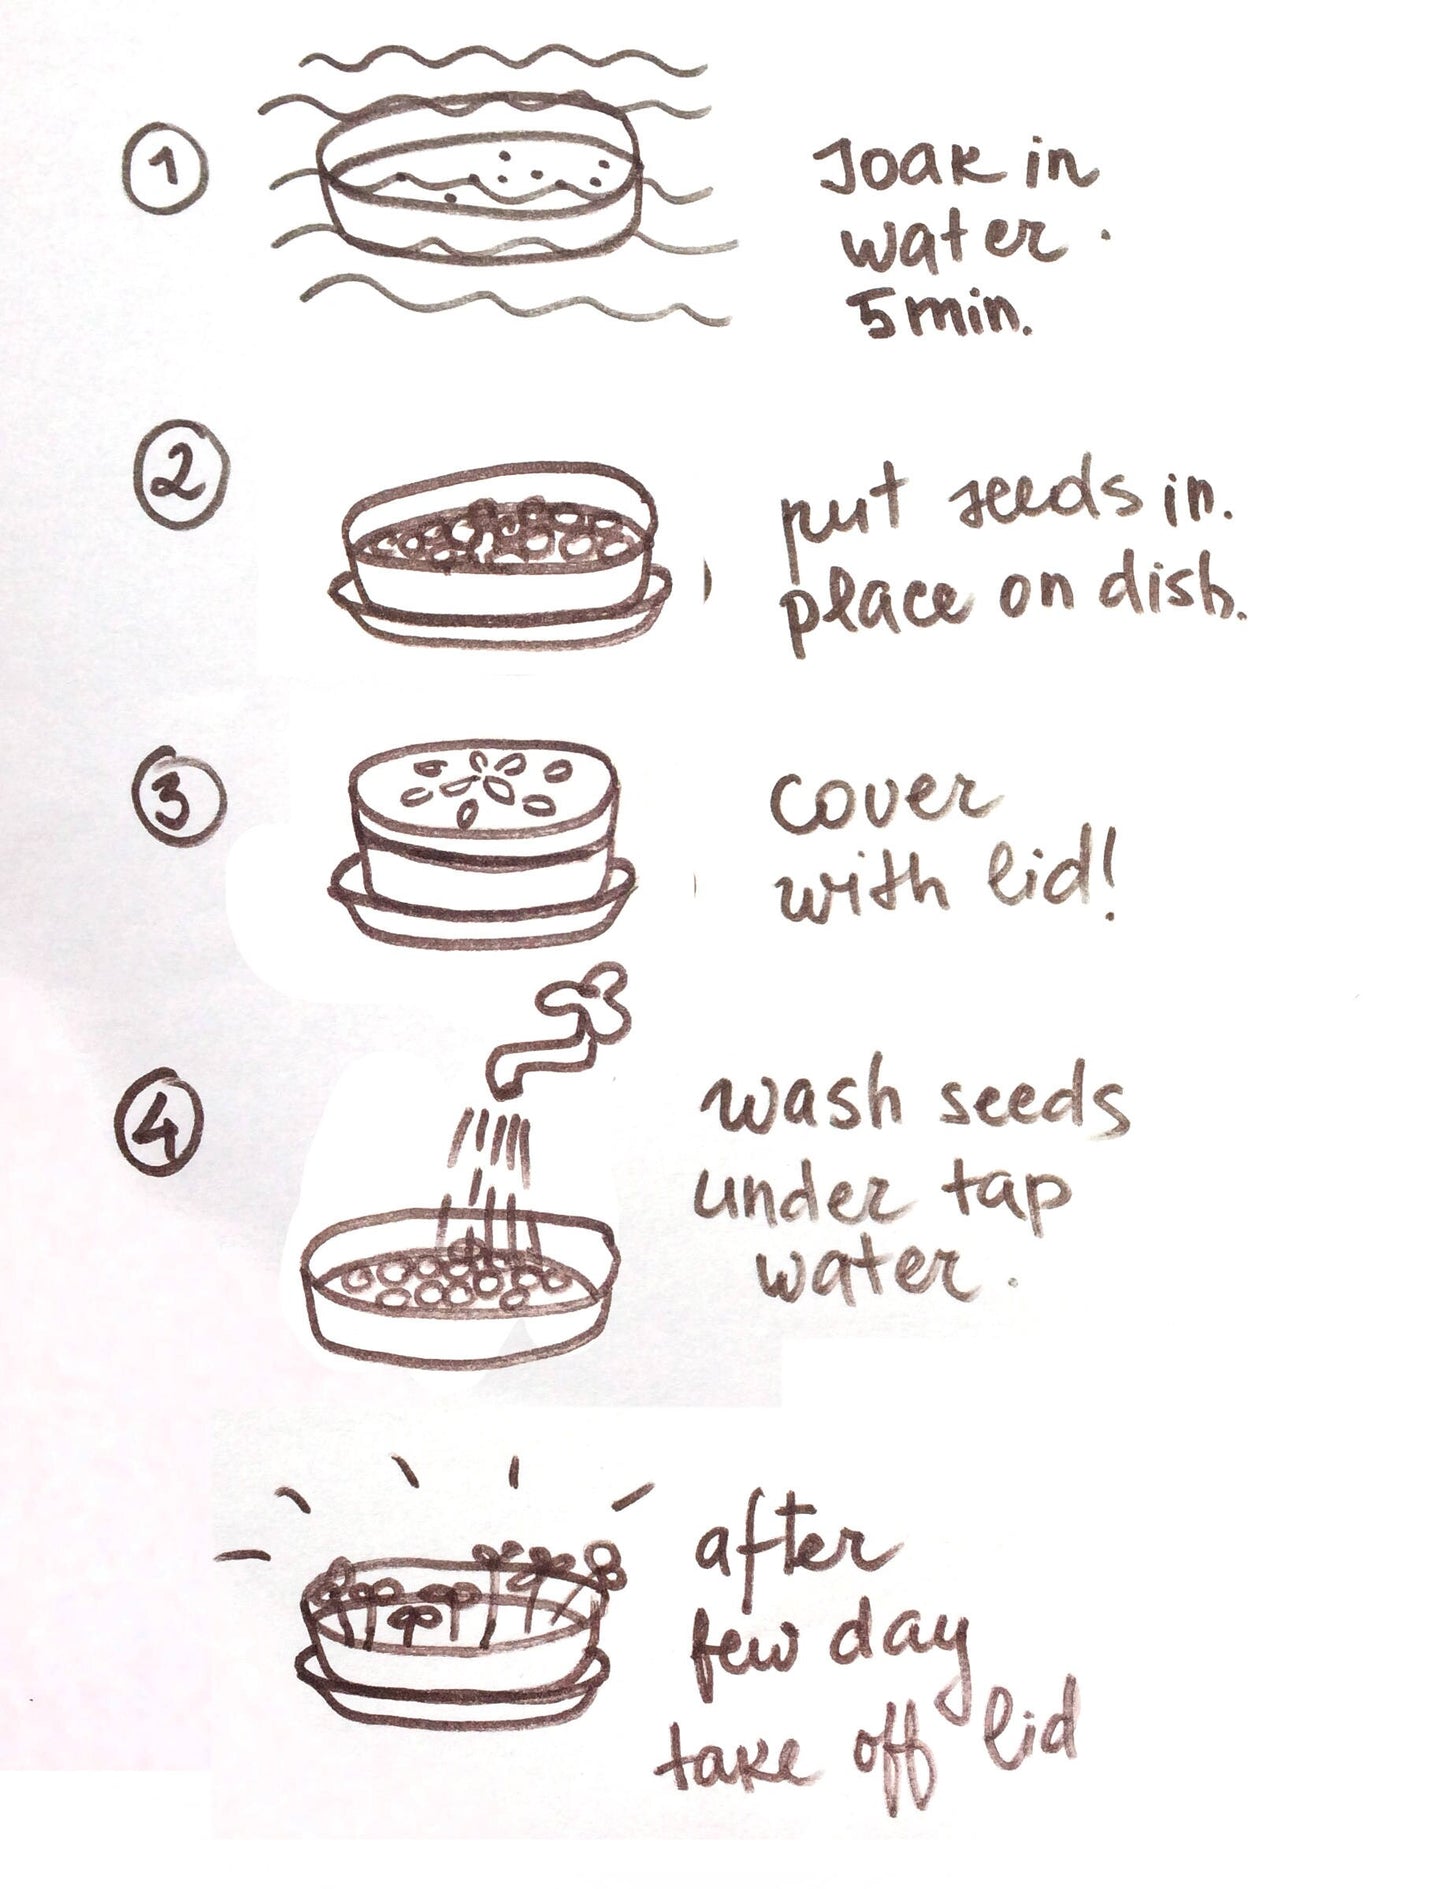 1
soak in
water.
5 min.
2
put seeds in.
place on dish.
3
cover
with lid!
4
wash seeds
under tap
water.
after
few day
take off lid